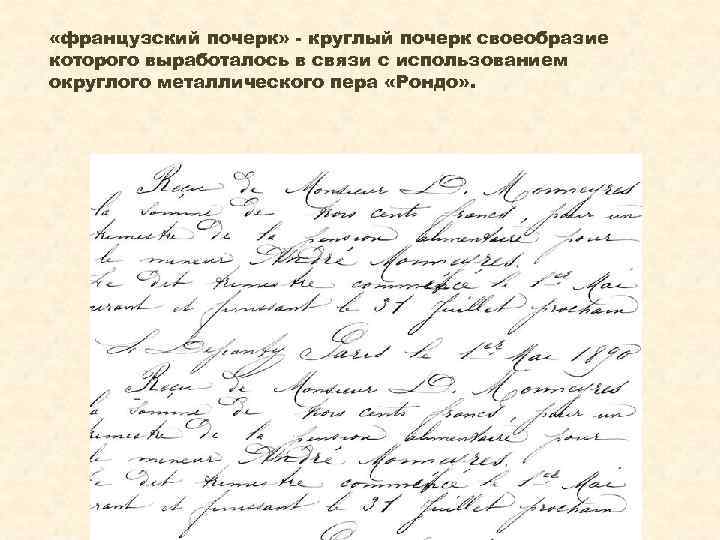 «французский почерк» - круглый почерк своеобразие
которого выработалось в связи с использованием
округлого металлического пера «Рондо» .
Reçu de Monsieur D. Monmeyres
la somme de trois cents francs, pour un
trimestre de la pension alimentaire pour
le mineur André Monmeyres.
Le dit trimestre commencé le 1er Mai
courant et finissant le 31 Juillet prochain
Paris le 1er Mai 1890
Reçu de Monsieur D. Monmeyres
la somme de trois cents francs, pour un
trimestre de la pension alimentaire pour
le mineur André Monmeyres.
Le dit trimestre commencé le 1er Mai
courant et finissant le 31 Juillet prochain